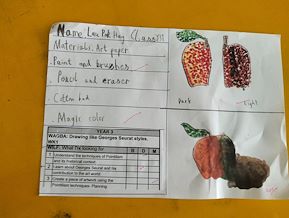 Name: Class
Materials: Art paper
Paint and brushes
Pencil and eraser
Cotton bud
Magic color
Dark
Light
YEAR 3
WAGBA: Drawing like Georges Seurat styles.
WK1
WILF: What I'm looking for:
1 Understand the techniques of Pointilism
and its historical context
2 Learn about Georges Seurat and his
contribution to the art world
3 Create a piece of artwork using the
Pointilism techniques- Planning